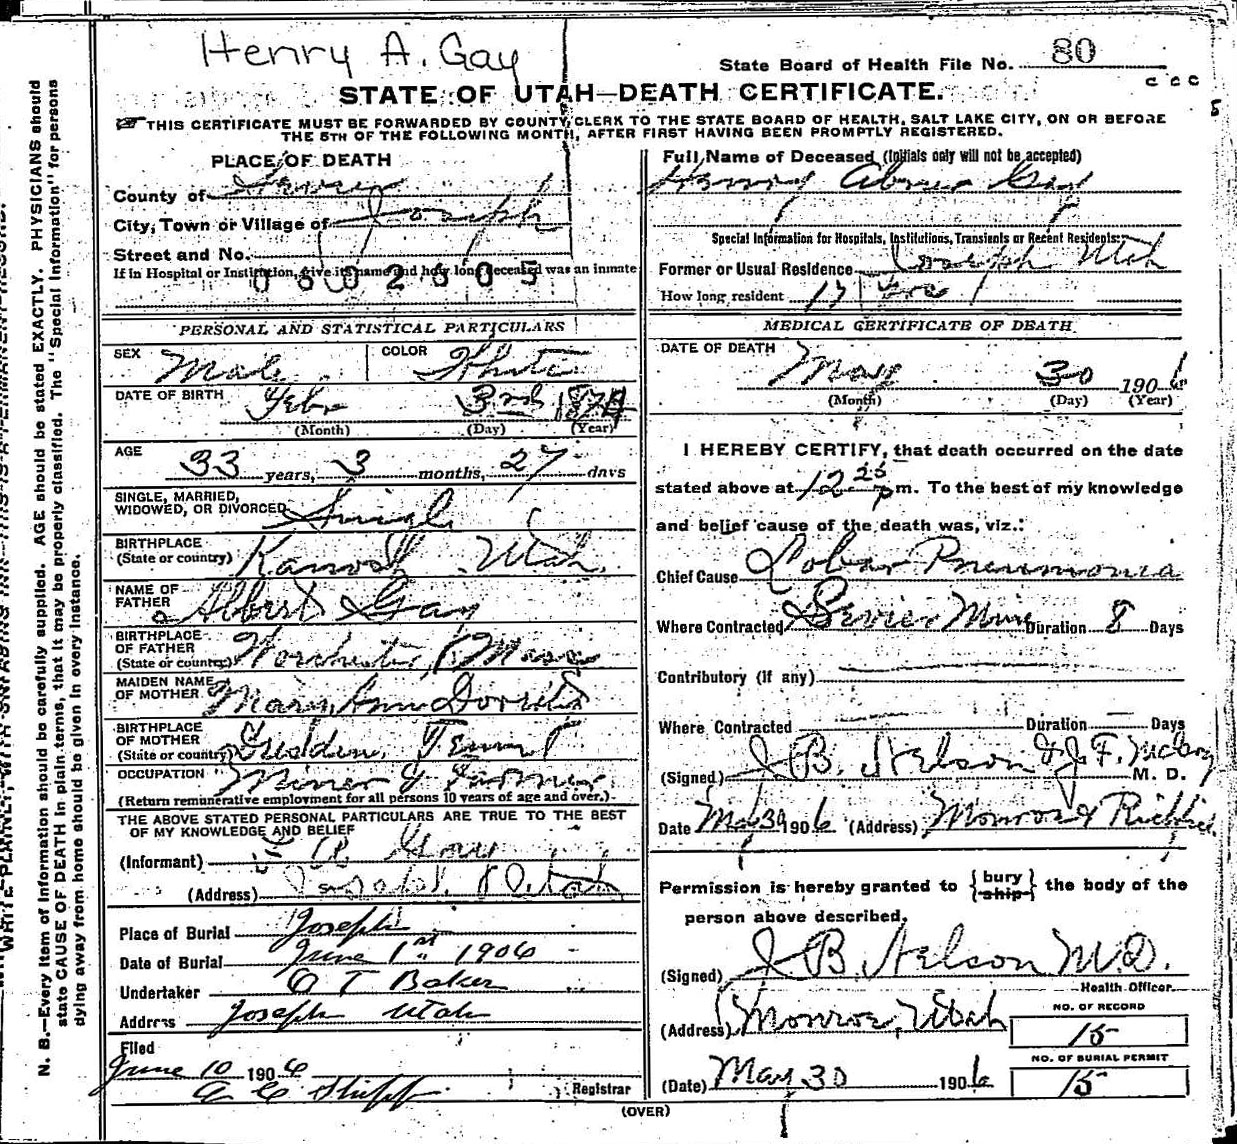 Henry A. Gay
State Board of Health File No. 80
c c c
STATE OF UTAH—DEATH CERTIFICATE.
THIS CERTIFICATE MUST BE FORWARDED BY COUNTY CLERK TO THE STATE BOARD OF HEALTH, SALT LAKE CITY, ON OR BEFORE
THE 5TH OF THE FOLLOWING MONTH, AFTER FIRST HAVING BEEN PROMPTLY REGISTERED.
PLACE OF DEATH
County of Sevier
City, Town or Village of Joseph
Street and No.
If in Hospital or Institution, give its name and how long deceased was an inmate
0602605
PERSONAL AND STATISTICAL PARTICULARS
SEX Male COLOR White
DATE OF BIRTH Feby 3rd
(Month) (Day) (Year)
AGE 33 years, 3 months, 27 days
SINGLE, MARRIED,
WIDOWED, OR DIVORCED Single
BIRTHPLACE
(State or country) Kanosh Utah.
NAME OF
FATHER Albert Gay
BIRTHPLACE
OF FATHER
(State or country) Worchester, Mass
MAIDEN NAME
OF MOTHER Mary Ann
BIRTHPLACE
OF MOTHER
(State or country) Tenn
OCCUPATION Miner & Farmer
(Return remunerative employment for all persons 10 years of age and over.)
THE ABOVE STATED PERSONAL PARTICULARS ARE TRUE TO THE BEST
OF MY KNOWLEDGE AND BELIEF
(Informant) Gay
(Address) Joseph Utah
Place of Burial Joseph
Date of Burial June 1st 1906
Undertaker O T Baker
Address Joseph Utah
Filed
June 10 1906
Registrar
Full Name of Deceased (Initials only will not be accepted)
Henry Abner Gay
Special Information for Hospitals, Institutions, Transients or Recent Residents:
Former or Usual Residence Joseph Utah
How long resident 17 Yrs
MEDICAL CERTIFICATE OF DEATH
DATE OF DEATH May 30 1906
(Month) (Day) (Year)
I HEREBY CERTIFY, that death occurred on the date
stated above at 12 25 p m. To the best of my knowledge
and belief cause of the death was, viz.:
Chief Cause Lobar Pneumonia
Where Contracted Sevier Mine Duration 8 Days
Contributory (if any)
Where Contracted Duration Days
(Signed) J B. Nelson & J. F. M. D.
Date May 30 1906 (Address) Monroe & Richfield
Permission is hereby granted to {bury ship} the body of the
person above described.
(Signed) J B. Nelson M.D.
Health Officer
(Address) Monroe, Utah
NO. OF RECORD
15
NO. OF BURIAL PERMIT
15
(Date) May 30 1906
(OVER)
N. B.—Every item of information should be carefully supplied. AGE should be stated EXACTLY. PHYSICIANS should
state CAUSE OF DEATH in plain terms, that it may be properly classified. The "Special Information" for persons
dying away from home should be given in every instance.